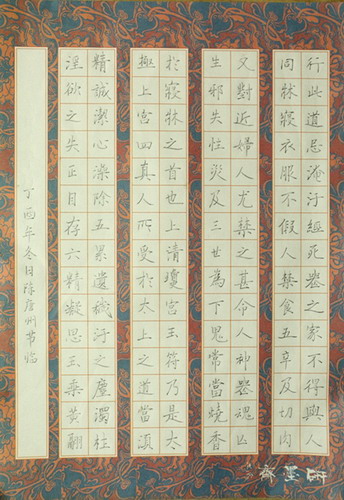 行此道忌淹汙經死喪之家不得與人
同牀寢衣服不假人禁食五辛及切肉
又對近婦人尤禁之甚令人神喪魂亡
生邪失性災及三世為下鬼常當燒香
於寢牀之首也上清瓊宮玉符乃是太
極上宮四真人所受於太上之道當須
精誠潔心澡除五累遺穢汙之塵濁杜
淫欲之失正目存六精凝思玉黃
丁酉年冬日陈州节临
研墨齋